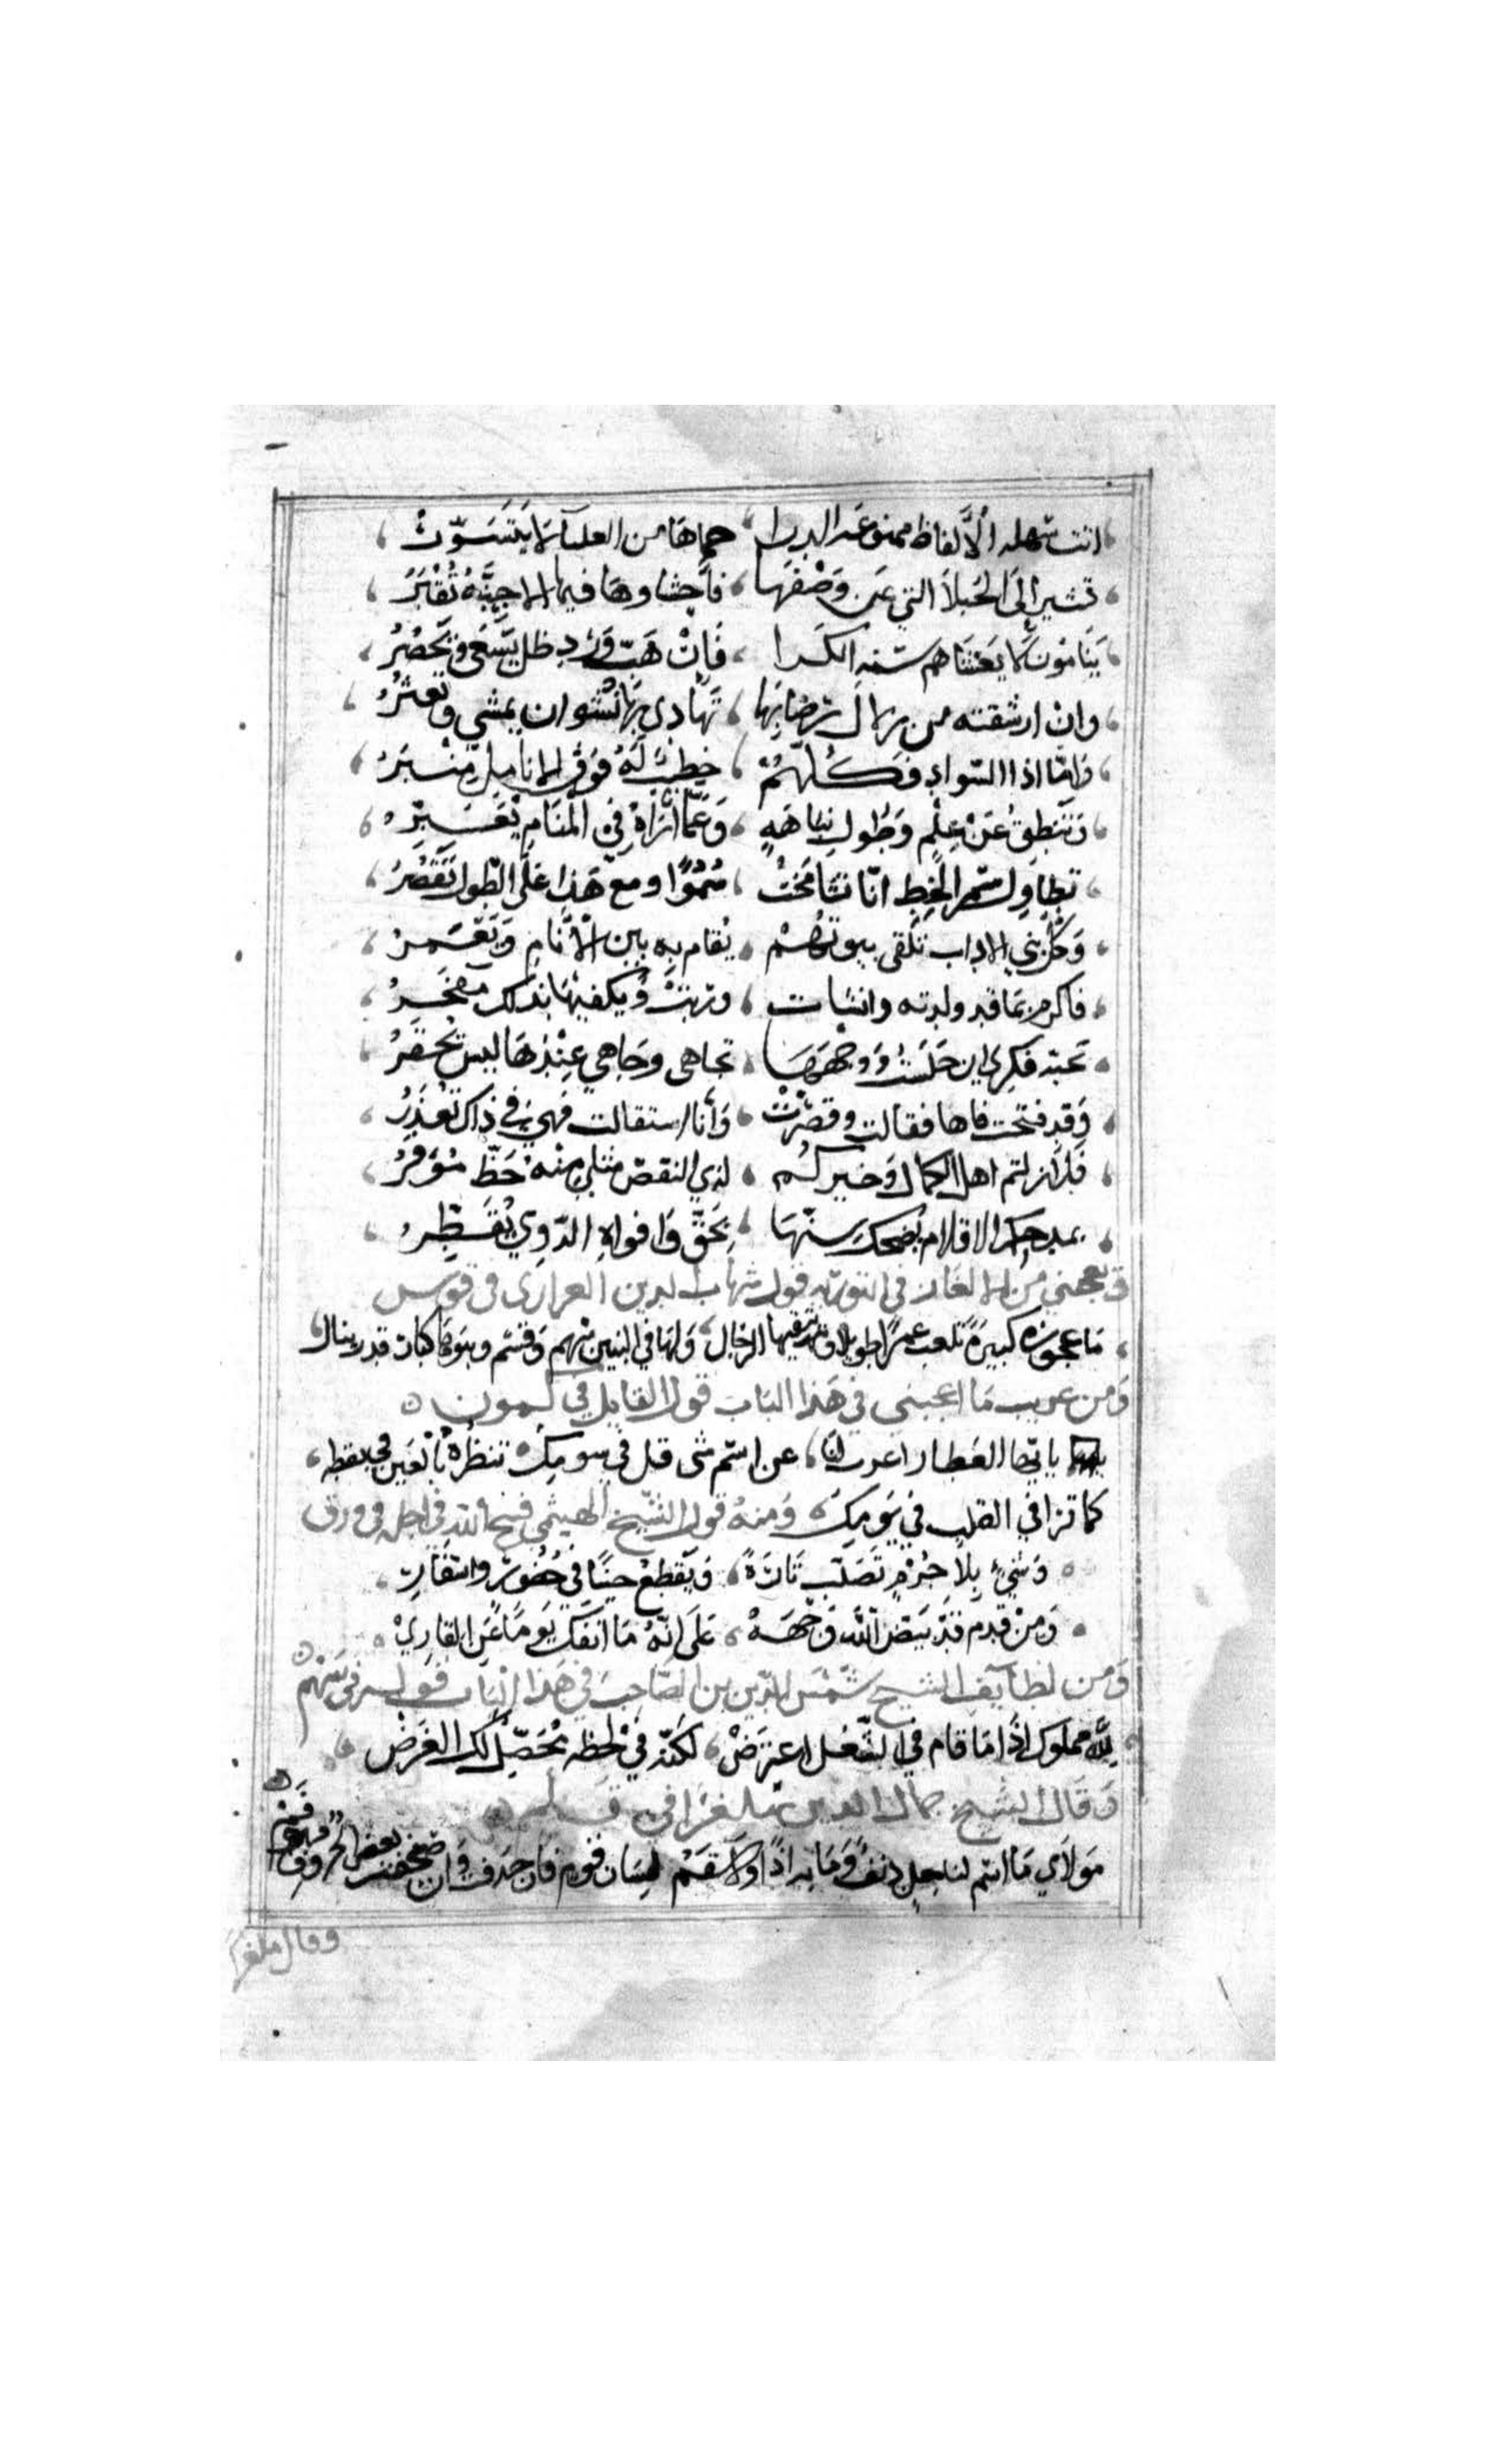 اتت سهلة الألفاظ ممنوعة الذرا حماها من العليآ لا يتسوّر
تشير إلى الحبلا التي عن وصفها فأحشاوها فيها الاجنّة تقبر
ينامون لا يغشاهم سنة الكرا فإن هبّ ورد ظل يسعى ويحضر
وان ارشقته من زلال رضابها تهادى بها نشوان يمشي ويعثر
وامّا اذا السواد فكلّهم خطيب له فوق الانامل منبر
وتنطق عن علم وطول نباهة وعمّا تراه في المنام يعبّر
تطاول سمر الخط امّا تشامخت سموّا ومع هذا على الطول تقصر
وكل بني الاداب تلقى بيوتهم يقام به بين الأنام ويعمر
فاكرم بما قد ولدته وانشات وربت ويكفيها بذلك مفخر
تجاهى وجاهي عندها ليس يحقر
وقد فتحت فاها فقالت وقصّرت وأنا استقالت فهي في ذاك تعذر
فلا زلتم اهل الكمال وخيركم لذي النقص مثلي منه حظّ موفر
بمدحكم الاقلام يضحك سنّها بحقّ وافواه الدّوي تقطّر
ويعجبني من الالغاز في التورية قول شهاب الدين العزازى في قوس
ما عجوز كبيرة بلغت عمرًا طويلا وتتقيها الرجال ولها في البنين سهم وقسم وبنوها كبار قدر ينال
ومن غريب ما اعجبني في هذا الباب قول القايل في ليمون
يا ايها العطار اعرب لنا عن اسم شى قل في سومك تنظره بالعين في يقظه
كما ترا في القلب في نومك ومنه قول الشيخ الهيثمي فتح الله في اجله في ورق
وشيء بلا جرم تصلب تارة ويقطع حينًا في حضور واسفار
ومن قدم قد بيّض الله وجهه على انّه ما انفك يومًا عن القاري
ومن لطآيف الشيخ شمس الدين بن الصاحب في هذا الباب قوله في سهم
لله مملوك اذا ما قام في الشغل اعترض لكنّه في لحظه يحصّل لك الغرض
وقال الشيخ جمال الدين ملغزا في قلم
مولاي ما اسم لناحل دنف وما به اذًا ولا سقم لسان قوم فان حذفت وان صحفت بعض الحروف فهو فم
وقال ملغزا